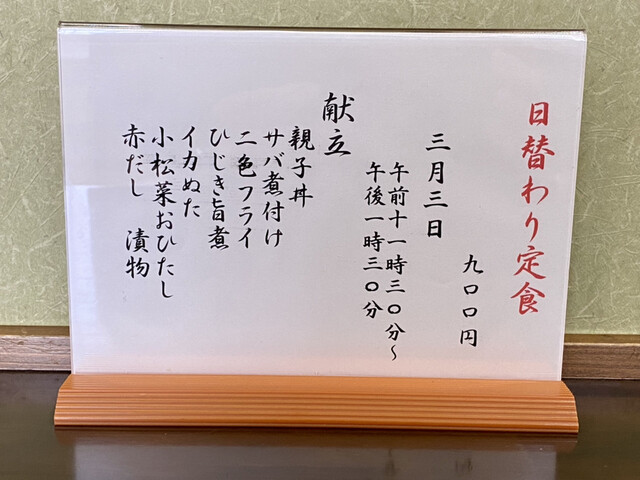 日替わり定食
九〇〇円
三月三日
午前十一時三〇分～
午後一時三〇分
献立
親子丼
サバ煮付け
二色フライ
ひじき旨煮
イカぬた
小松菜おひたし
赤だし　漬物